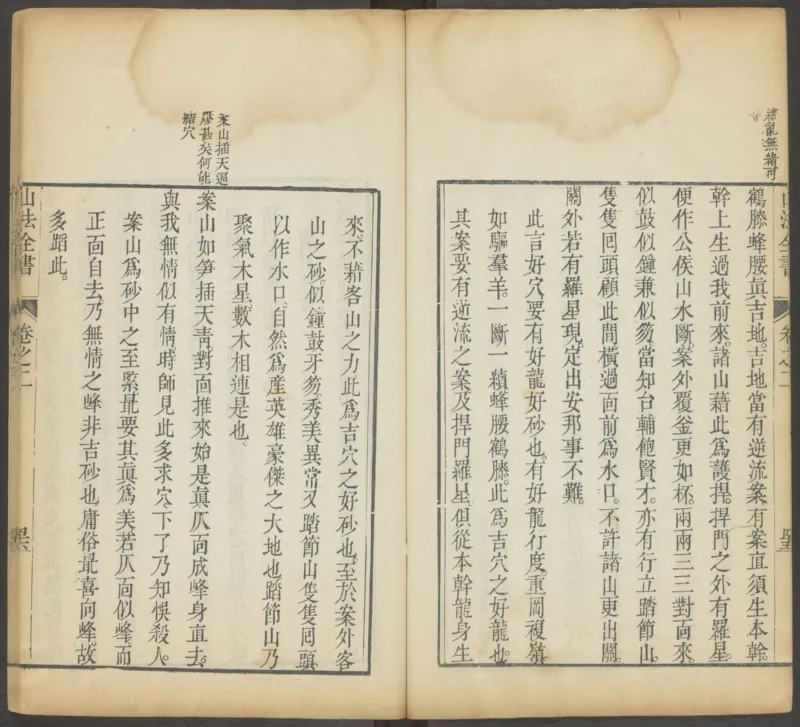 雜亂無緒可
鶴膝蜂腰眞吉地。吉地當有逆流案有案直須生本幹。
幹上生過我前來。諸山藉此爲護捍。捍門之外有羅星。
便作公侯山水斷。案外覆釜更如杯。兩兩三三對面來。
似鼓似鐘兼似笏當知台輔飽賢才。亦有行立踏節山。
隻隻囘頭顧此間橫過面前爲水口。不許諸山更出關。
關外若有羅星現。定出安邦事不難。
此言好穴要有好龍好砂也。有好龍行度。重岡複嶺
如驅羣羊。一斷一續蜂腰鶴膝。此爲吉穴之好龍也。
其案要有逆流之案及捍門羅星。俱從本幹龍身生
山法全書
卷之二
案山插天逼
壓甚矣何能
結穴
來不藉客山之力此爲吉穴之好砂也。至於案外客
山之砂。似鐘鼓牙笏。秀美異常又踏節山隻隻囘頭
以作水口。自然爲產英雄豪傑之大地也踏節山乃
聚氣木星數木相連是也。
案山如笋插天靑對面推來始是眞仄面成峰身直去。
與我無情似有情時師見此多求穴。下了乃知悞殺人。
案山爲砂中之至緊最要其眞爲美若仄面似峰而
正面自去。乃無情之峰非吉砂也庸俗最喜向峰。故
多蹈此。
山法全書
卷之二